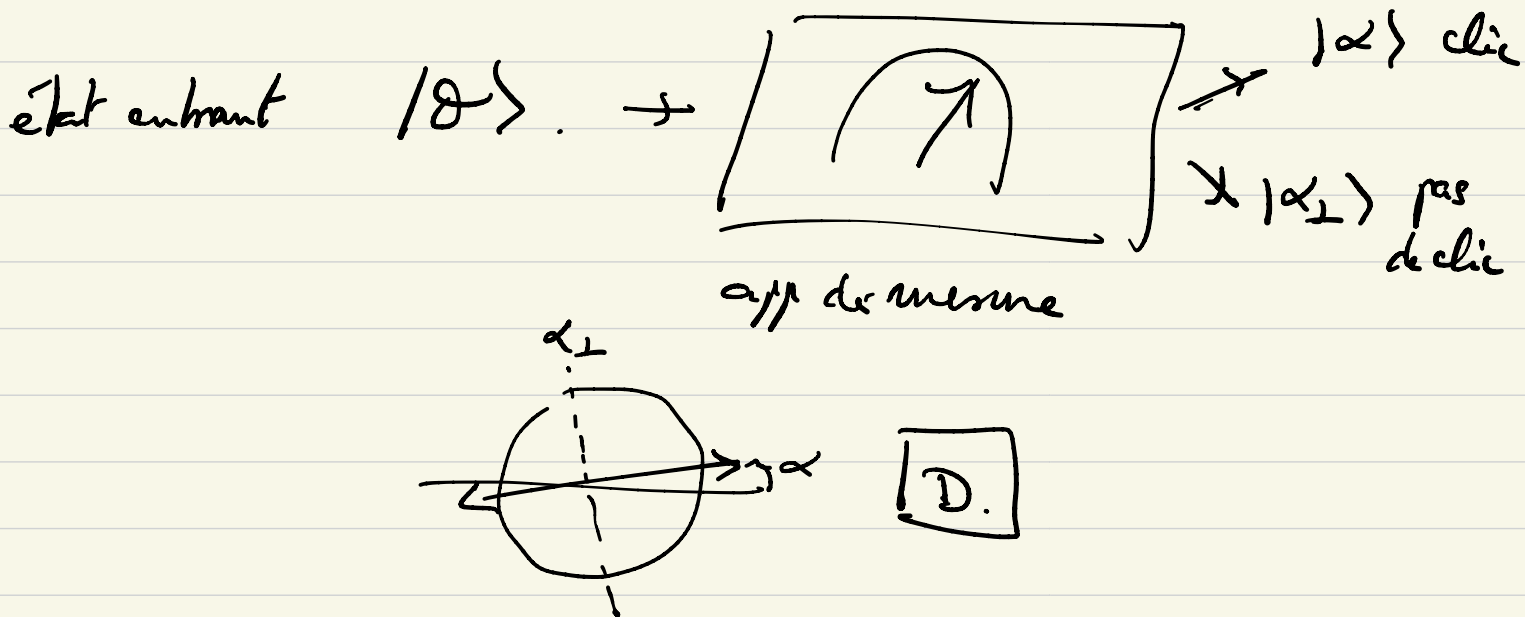 état entrant |θ⟩. → |α⟩ clic
|α⊥⟩ pas
de clic
app de mesure
α⊥
α
D.